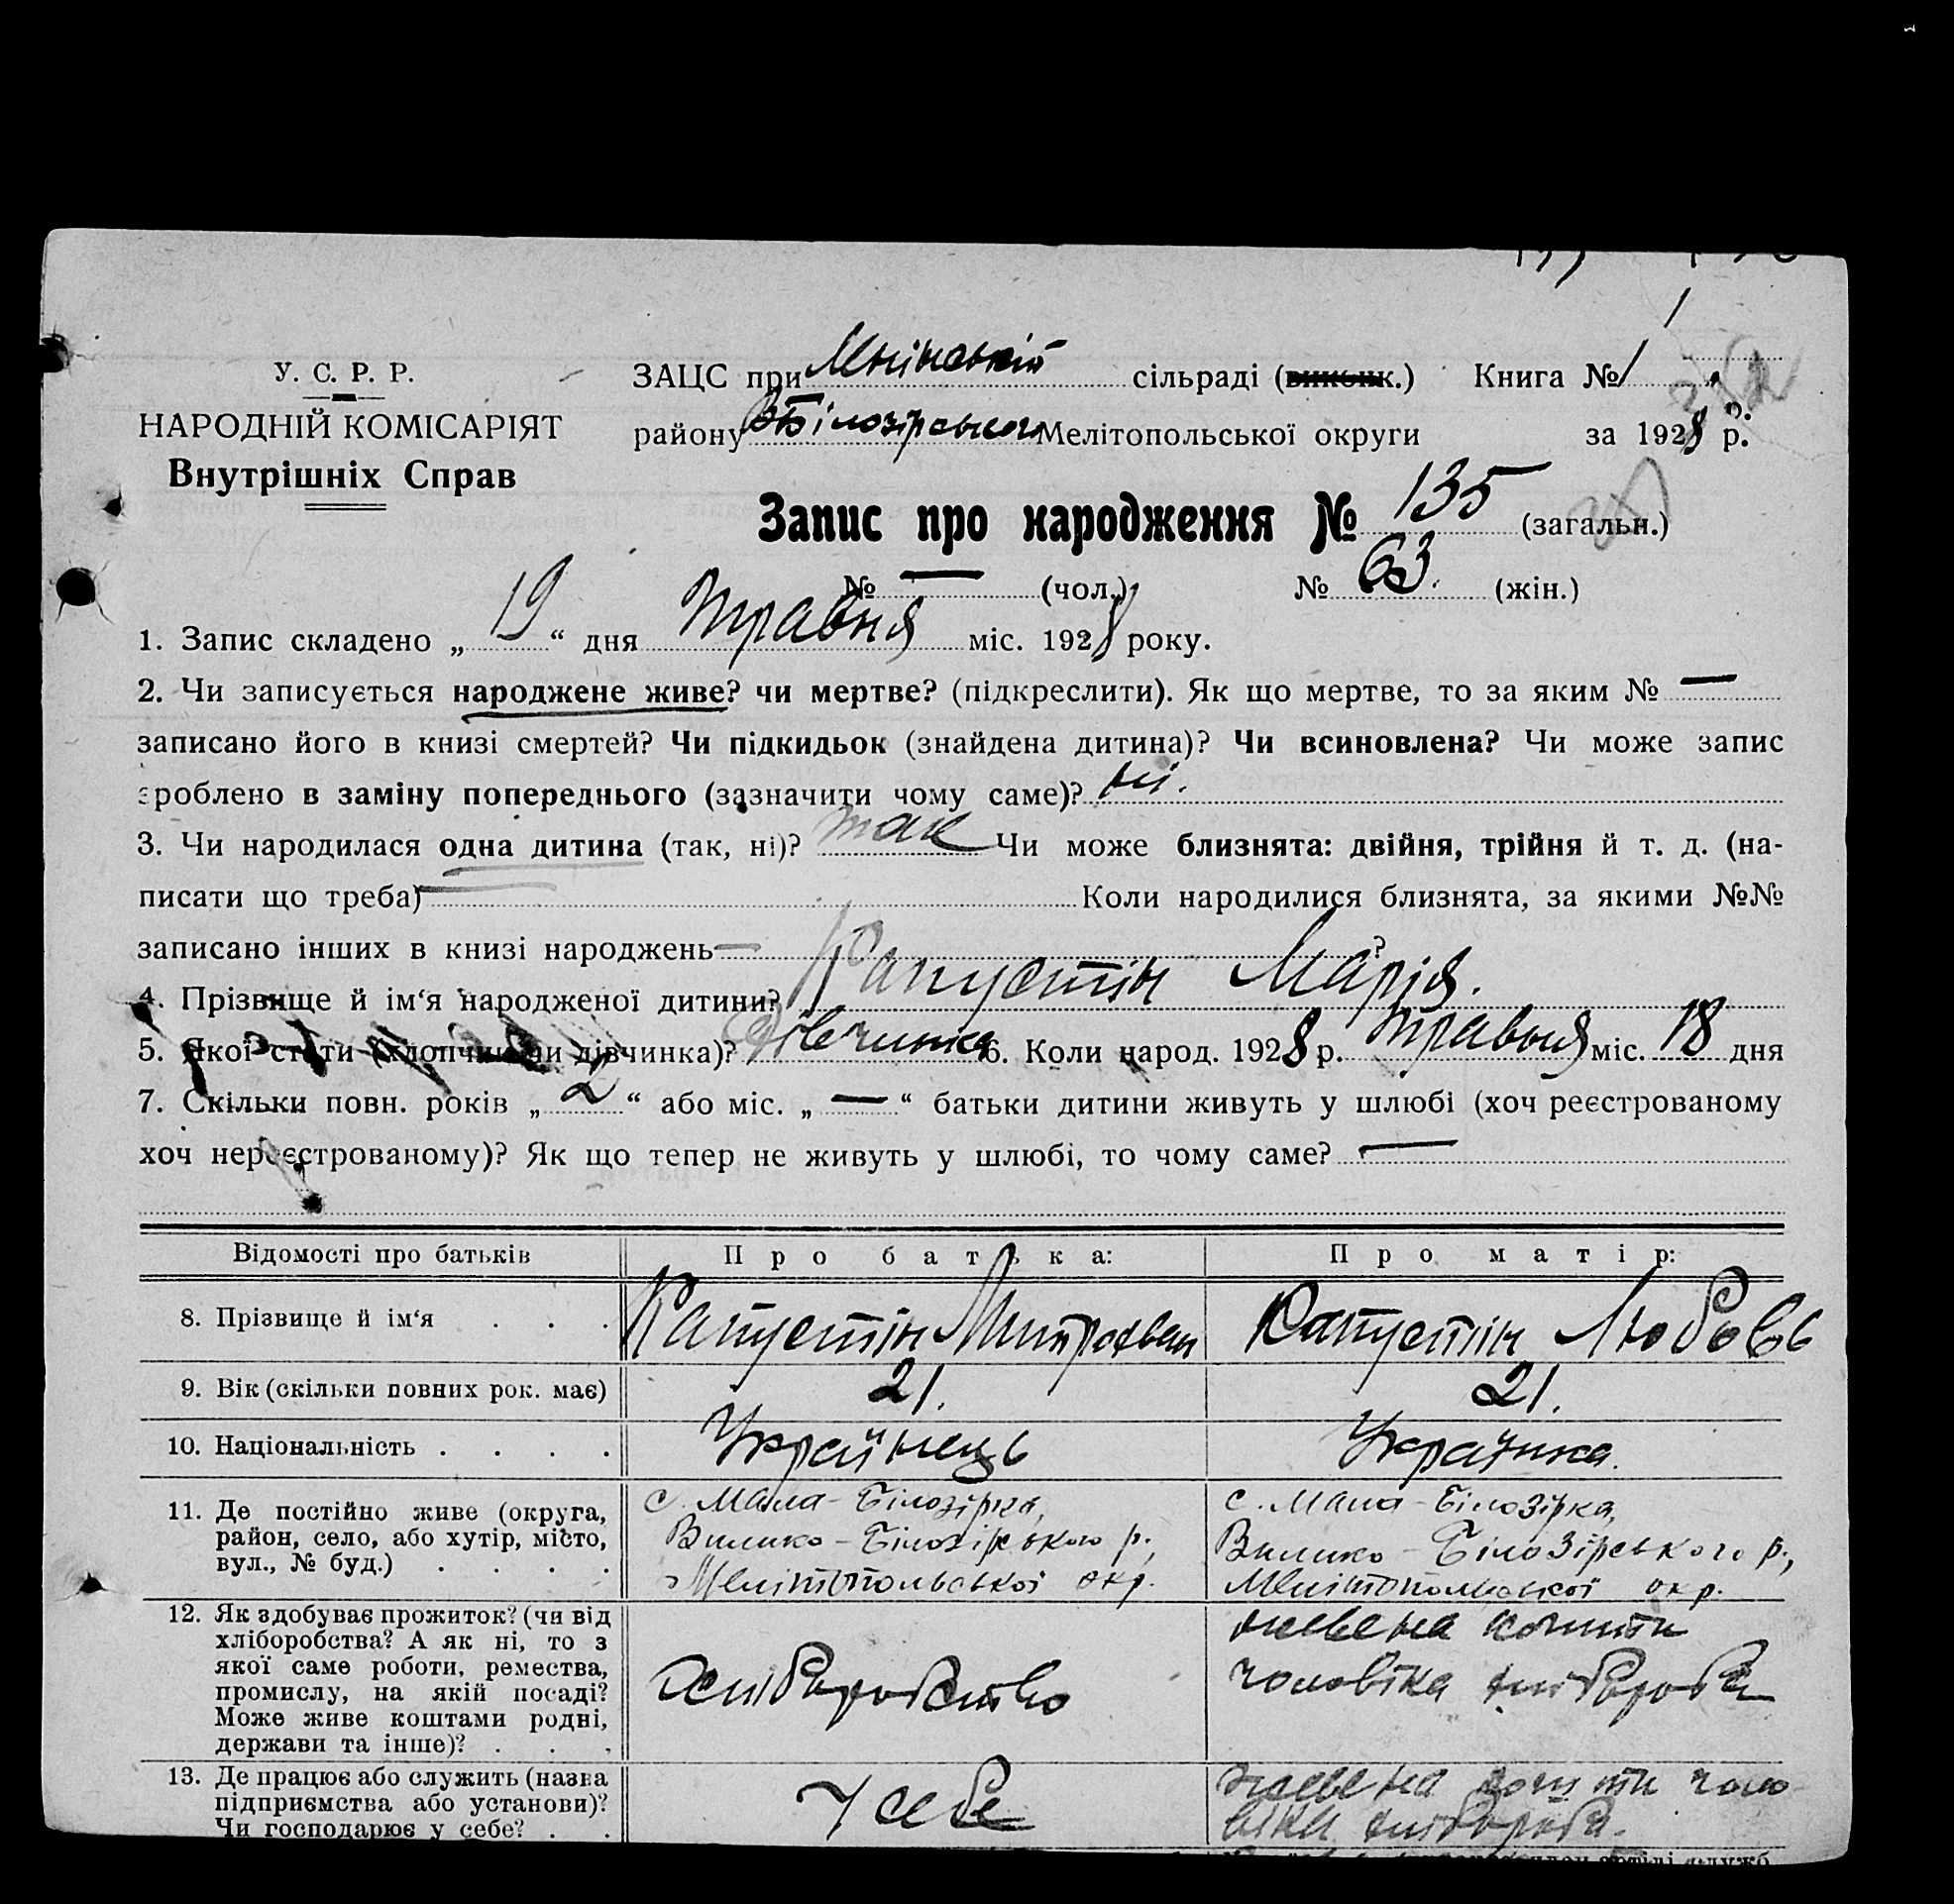 У. С. Р. Р.
НАРОДНІЙ КОМІСАРІЯТ
Внутрішніх Справ
ЗАЦС при сільраді (виконк.) Книга № 1
району В Білозірського Мелітопольської округи за 1928 р.
Запис про народження № 135 (загальн.)
№ — (чол.) № 63. (жін.)
1. Запис складено „ 19 “ дня травня міс. 1928 року.
2. Чи записується народжене живе? чи мертве? (підкреслити). Як що мертве, то за яким № —
записано його в книзі смертей? Чи підкидьок (знайдена дитина)? Чи всиновлена? Чи може запис
зроблено в заміну попереднього (зазначити чому саме)? ні.
3. Чи народилася одна дитина (так, ні)? так Чи може близнята: двійня, трійня й т. д. (на-
писати що треба) — Коли народилися близнята, за якими №№
записано інших в книзі народжень — ?
4. Прізвище й ім‘я народженої дитини? Капустін Марія.
5. Якої стати (хлопчик чи дівчинка)? Дівчинка 6. Коли народ. 1928 р. травня міс. 18 дня
7. Скільки повн. років „ 2 “ або міс. „ — “ батьки дитини живуть у шлюбі (хоч реєстрованому
хоч нереєстрованому)? Як що тепер не живуть у шлюбі, то чому саме? —
Відомості про батьків Про батька: Про матір:
8. Прізвище й ім‘я . . . Капустін Митрофан Капустін Любовь
9. Вік (скільки повних рок. має) 21. 21.
10. Національність . . . . Українець Українка.
11. Де постійно живе (округа,
район, село, або хутір, місто,
вул., № буд.) . . . .
с. Мала-Білозірка,
Велико-Білозірського р.,
Мелітопольської окр.
с. Мала-Білозірка,
Велико-Білозірського р.,
Мелітопольської окр.
12. Як здобуває прожиток? (чи від
хліборобства? А як ні, то з
якої саме роботи, ремества,
промислу, на якій посаді?
Може живе коштами родні,
держави та інше)? . . .
Хліборобство
живе на кошти
чоловіка хлібороба
13. Де працює або служить (назва
підприємства або установи)?
Чи господарює у себе? . .
У себе
живе на кошти чоло-
віка хлібороба.